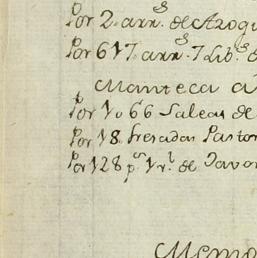 Por 2. arr.s de Azogu
Por 617 arr.s 7 Lib.s d
Manteca d
Por 1o66 Saleas de
Por 18 fresadas Pastor
Por 128 p.s 1 r.l de Javo
Memo